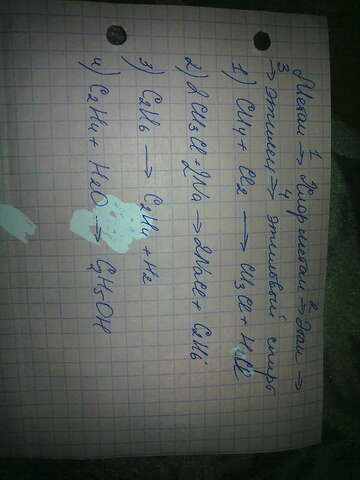 1 2
Метан → Хлорметан → Этан →
3 4
→ этилен → этиловый спирт
1) CH4 + Cl2 → CH3Cl + HCl
2) 2CH3Cl + 2Na → 2NaCl + C2H6
3) C2H6 → C2H4 + H2
4) C2H4 + H2O → C2H5OH